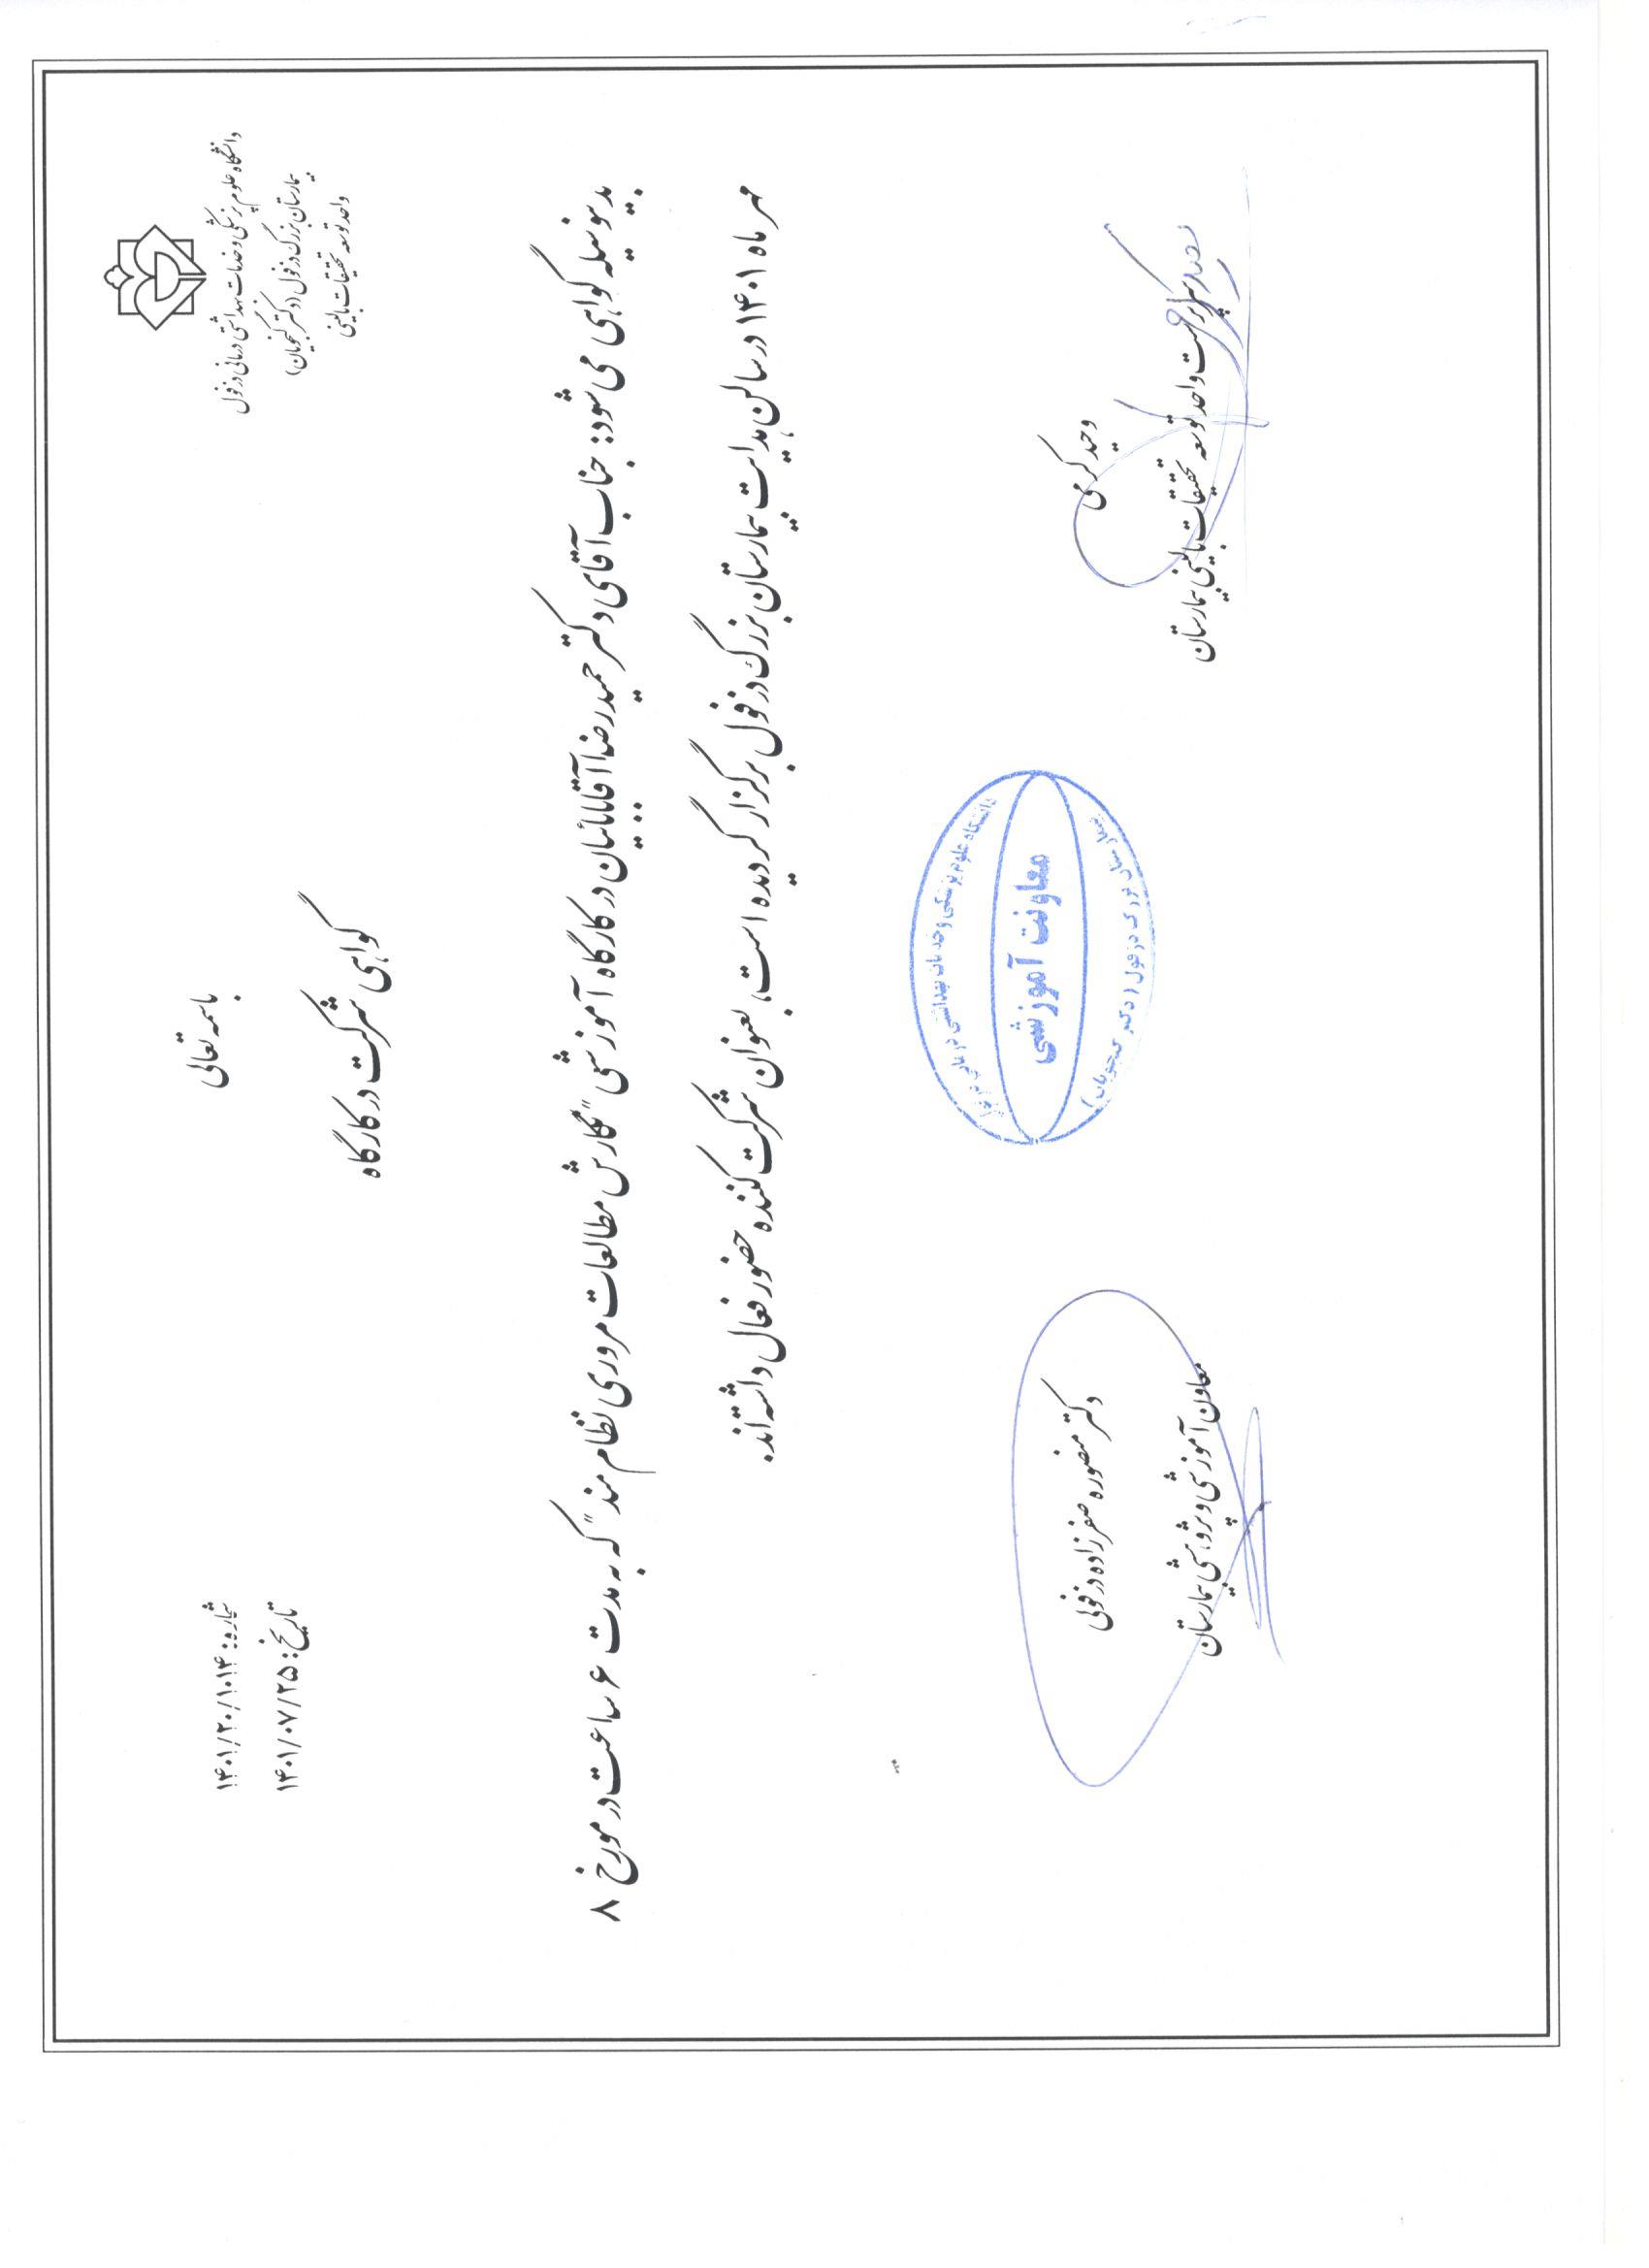 باسمه تعالی
گواهی شرکت در کارگاه
دانشگاه علوم پزشکی و خدمات بهداشتی درمانی دزفول
بیمارستان بزرگ دزفول (دکتر گنجویان)
واحد توسعه تحقیقات بالینی
شماره: ۱۴۰۱/۲۰/۱۰۱۴
تاریخ: ۱۴۰۱/۰۷/۲۵
بدینوسیله گواهی می شود: جناب آقای دکتر حمیدرضا آقابابائیان در کارگاه آموزشی "نگارش مطالعات مروری نظام مند" که به مدت ۶ ساعت در مورخ ۸
مهر ماه ۱۴۰۱ در سالن هدایت بیمارستان بزرگ دزفول برگزار گردیده است، بعنوان شرکت کننده حضور فعال داشته اند.
وحید کرمی
سرپرست واحد توسعه تحقیقات بالینی بیمارستان
دانشگاه علوم پزشکی و خدمات بهداشتی درمانی دزفول
معاونت آموزشی
بیمارستان بزرگ دزفول (دکتر گنجویان)
دکتر منصوره صفرزاده دزفولی
معاون آموزشی و پژوهشی بیمارستان